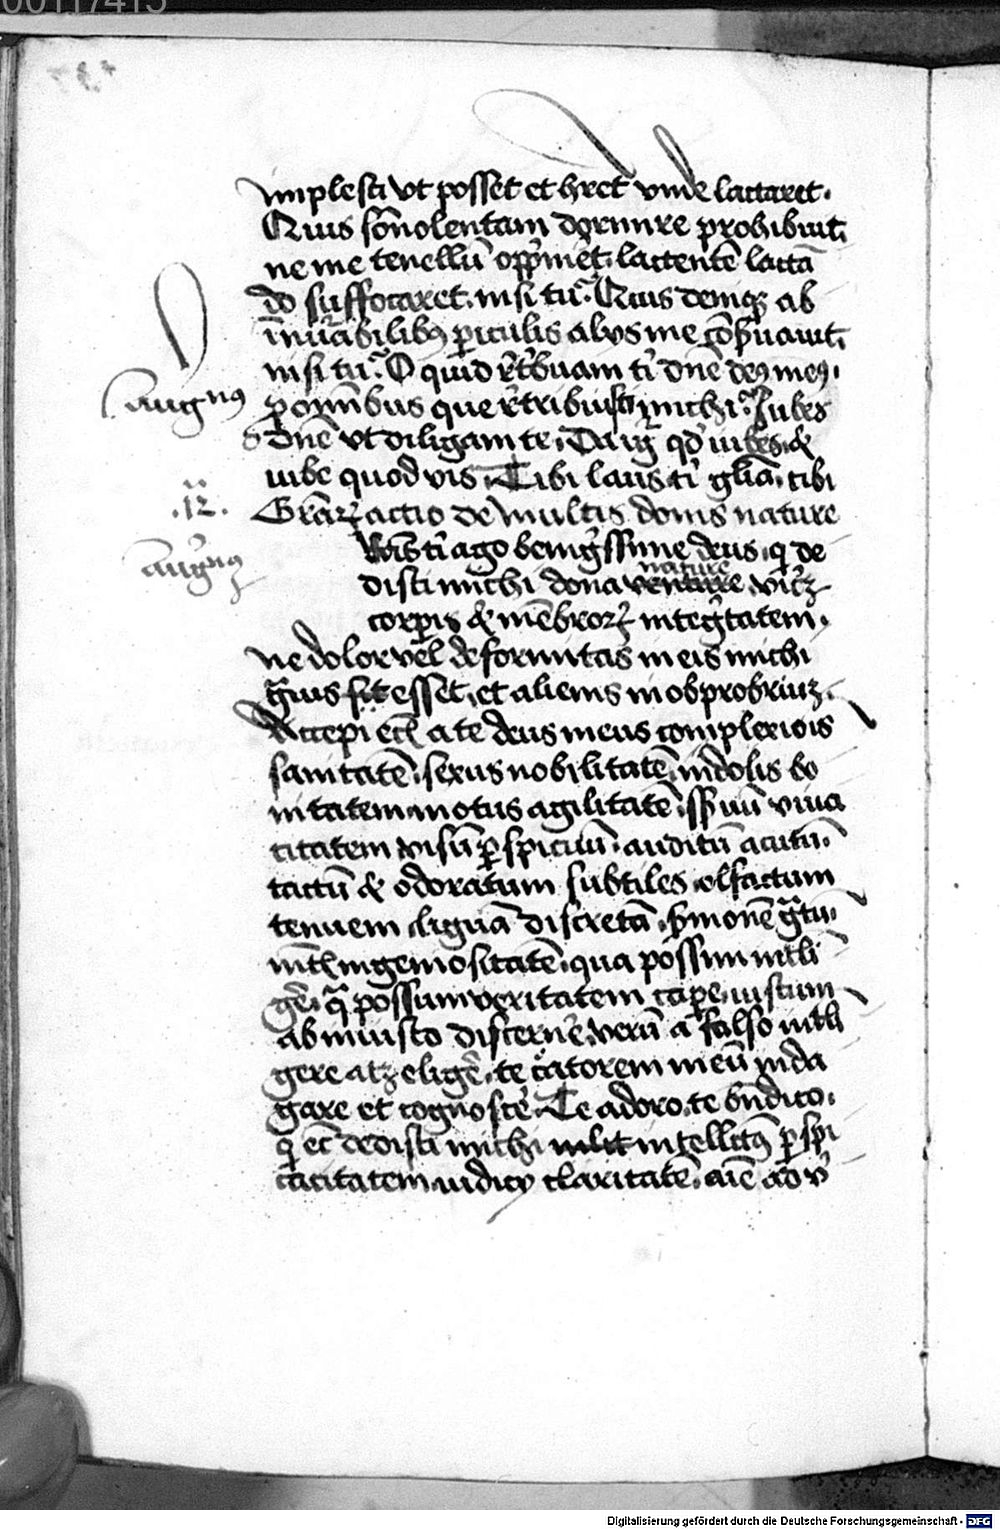 00117415
implesti vt posset et hret vnde lactaret.
Quis so̅nolentam dormire prohibuit,
ne me tenellu̅ opp̅meret. lactente̅ lacta̅
do suffocaret. nisi tu? Quis denique ab
in̅u̅abilibus periculis alios me
nisi tu? O quid tibi dn̅e deus meus.
pro omnibus que retribuisti michi? Jubes
dn̅e vt diligam te. Da qd̅ iubes &
iube quod vis. Tibi laus tibi glia̅. tibi
augnus
.12.
Gra̅rꝝ actio de multis donis nature
tibi ago benig̅ssime deus. q de
augnus
disti michi dona nature
corporis & me̅brorꝝ integ̅tatem.
ne dolor vel deformitas meis michi
esset, et alienis in obprobriuꝫ.
Accepi eci̅ a te deus meus complexiois
sanitate̅. sexus nobilitate̅ indolis bo
nitatem motus agilitate̅. viua
citatem visu̅ p̲spicuu̅. auditu̅ acutu̅.
tactu̅ & odoratum subtiles. olfactum
tenuem. ligua̅ discreta̅. s̅mone̅ g̅tu̅.
ingeniositate̅. qua possim intli
ge̅. possum veritatem cap̲e. iustum
ab iniusto discerne̅. veru̅ a falso intli
gere atꝫ elige̅. te meu̅ inda
gare et cognosce̅. Te adoro. te bn̅dico.
q ec̅ dedisti michi intellectus p̲spi
cacitatem iudicij claritate̅. ad
Digitalisierung gefördert durch die Deutsche Forschungsgemeinschaft - DFG